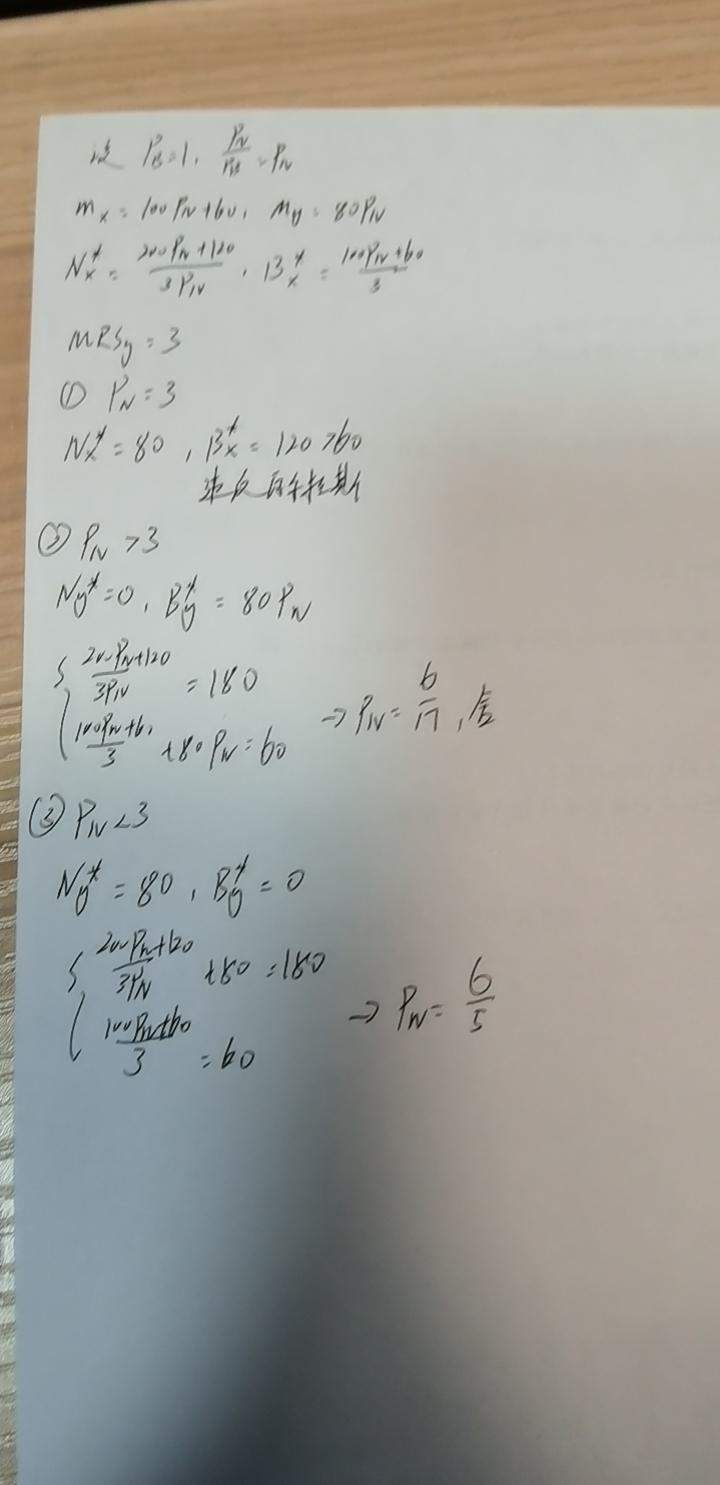 设 P_B=1, P_N/P_B=P_N
m_x=100P_N+60, m_y=80P_N
N_x^*=(200P_N+120)/(3P_N), B_x^*=(100P_N+60)/3
MRS_y=3
① P_N=3
N_x^*=80, B_x^*=120>60
违反瓦尔拉斯
② P_N>3
N_y^*=0, B_y^*=80P_N
{ (200P_N+120)/(3P_N)=180
(100P_N+60)/3+80P_N=60 → P_N=6/17, 舍
③ P_N<3
N_y^*=80, B_y^*=0
{ (200P_N+120)/(3P_N)+80=180
(100P_N+60)/3=60 → P_N=6/5